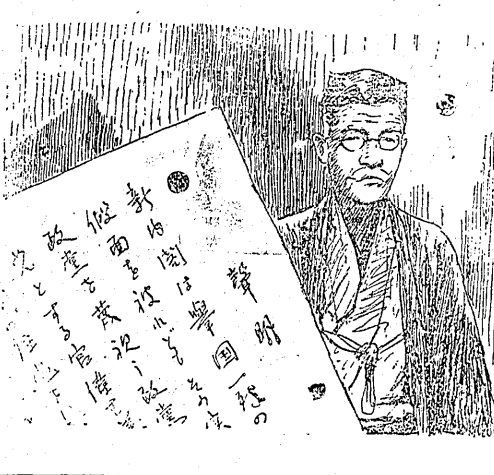 聲明
新内閣は擧国一致の
假面を被れどもその実
政黨を蔑視し政黨
とする官僚